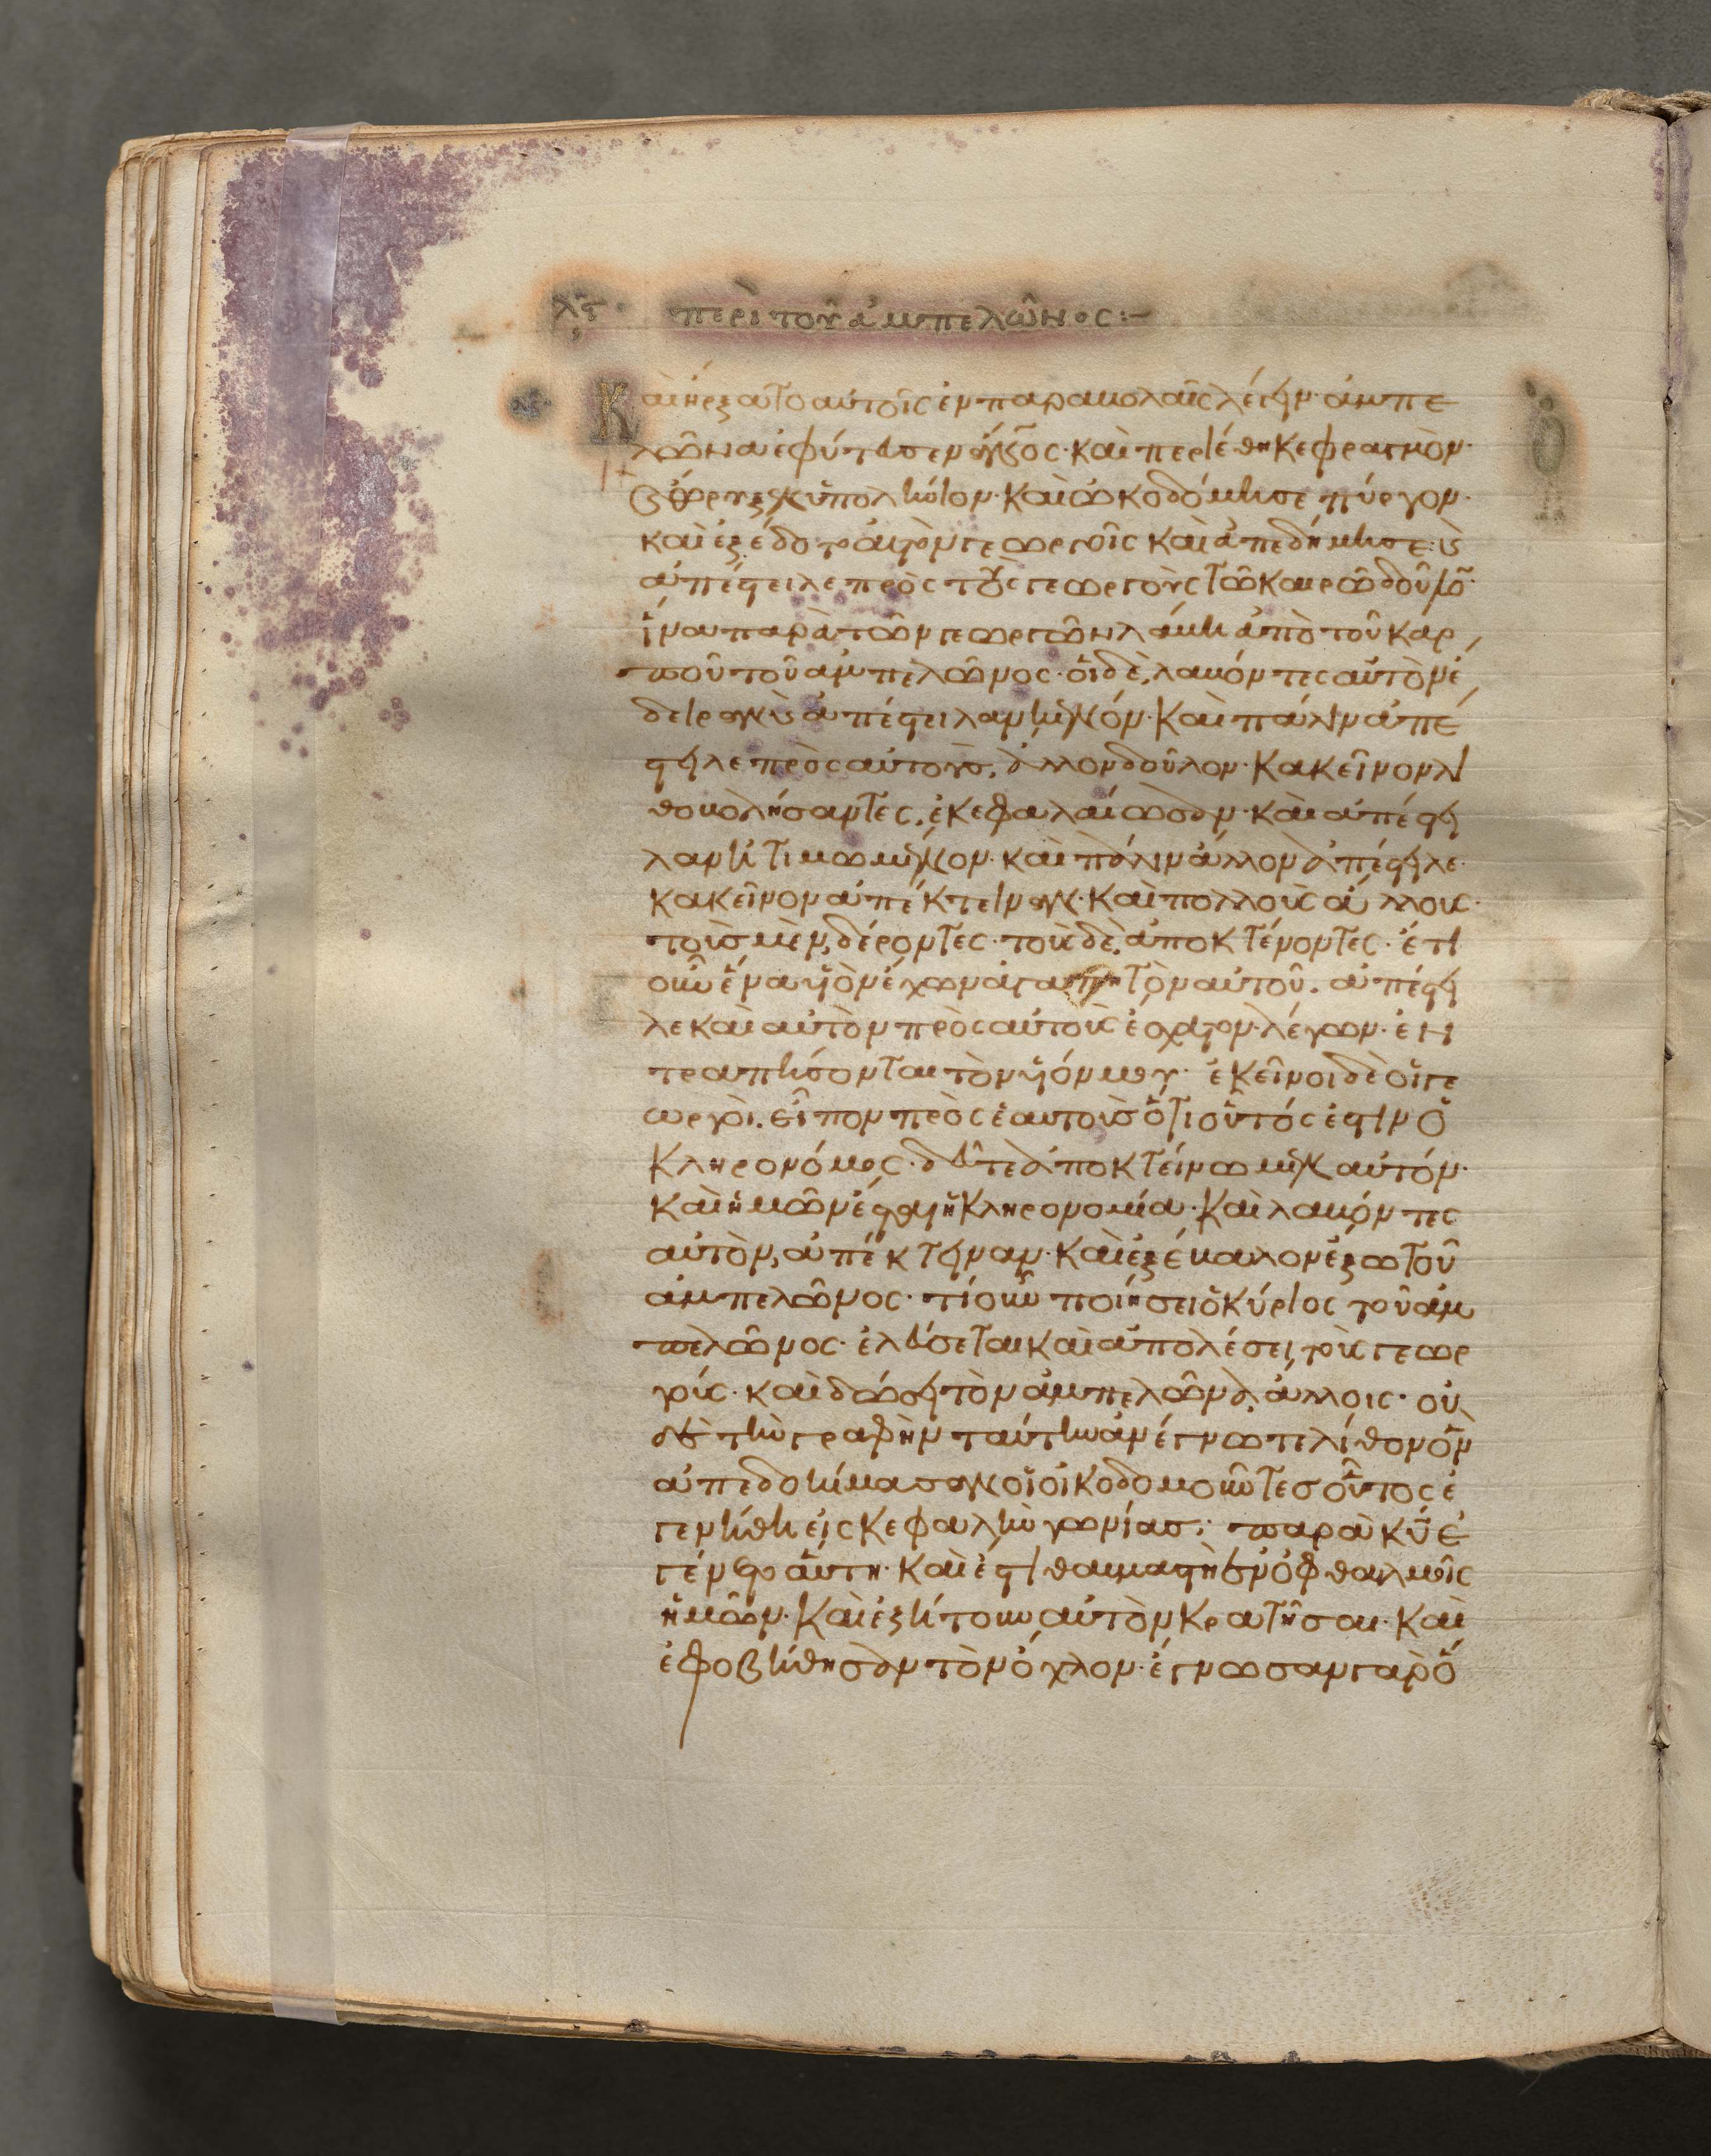 λϛ· περὶ τοῦ ἀμπελῶνος:–
Καὶ ἤρξατο αὐτοῖς ἐν παραβολαῖς λέγειν· ἀμπε
λῶνα ἐφύτευσεν ἄνος· καὶ περιέθηκε φραγμὸν·
ὤρυξεν ὑπολήνιον· καὶ ὠκοδόμησε πύργον·
καὶ ἐξέδοτο αὐτὸν γεωργοῖς καὶ ἀπεδήμησε· καὶ
ἀπέστειλε πρὸς τοὺς γεωργοὺς τῶ καιρῶ δοῦλον·
ἵνα παρὰ τῶν γεωργῶν λάβη ἀπὸ τοῦ καρ
ποῦ τοῦ ἀμπελῶνος· οἱ δὲ, λαβόντες αὐτὸν ἔ
δειραν καὶ ἀπέστειλαν κενόν· Καὶ πάλιν ἀπέ
στειλε πρὸς αὐτοὺς, ἄλλον δοῦλον· κακεῖνον λι
θοβολήσαντες, ἐκεφαλαίωσαν· καὶ ἀπέστει
λαν ἠτιμωμένον· καὶ πάλιν ἄλλον ἀπέστειλε·
κακεῖνον ἀπέκτειναν· Καὶ πολλοὺς ἄλλους·
τοὺς μὲν, δέροντες· τοὺς δὲ, ἀποκτένοντες· ἔτι
οὖν ἕνα υἱὸν ἔχων ἀγαπητὸν αὐτοῦ. ἀπέστει
λε καὶ αὐτὸν πρὸς αὐτοὺς ἔσχατον· λέγων· ἐν
τραπήσονται τὸν υἱόν μου· ἐκεῖνοι δὲ οἱ γε
ωργοὶ. εἶπον πρὸς ἑαυτοὺς ὅτι οὗτός ἐστιν ὁ
Κληρονόμος· δεῦτε ἀποκτείνωμεν αὐτόν·
καὶ ἡμῶν ἔσται ἡ κληρονομία· Καὶ λαβόντες
αὐτὸν, ἀπέκτειναν· Καὶ ἐξέβαλον ἔξω τοῦ
ἀμπελῶνος· τί οὖν ποιήσει ὁ κύριος τοῦ ἀμ
πελῶνος· ἐλεύσεται καὶ ἀπολέσει τοὺς γεωρ
γούς· καὶ δώσει τὸν ἀμπελῶνα ἄλλοις· οὐ
δὲ τὴν γραφὴν ταύτην ἀνέγνωτε λίθον ὃν
ἀπεδοκίμασαν οἱ οἰκοδομοῦντες οὗτος ἐ
γενήθη εἰς κεφαλὴν γωνίας; παρὰ κυ ἐ
γένετο αὕτη· Καὶ ἔστι θαυμαστὴ ἐν ὀφθαλμοῖς
ἡμῶν· Καὶ ἐζήτουν αὐτὸν κρατῆσαι· Καὶ
ἐφοβήθησαν τὸν ὄχλον· ἔγνωσαν γὰρ ὅ